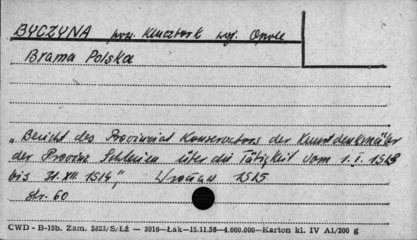 BYCZYNA pow. Kluczbork woj. Opole
Brama Polska
„Bericht des Provinzial Konservators der Kunstdenkmäler
der Provinz Schlesien über die Tätigkeit vom 1. I. 1913
bis 31. XII 1914", Wrocław 1915
str. 60
CWD - B-15b. Zam. 5823/S/ŁŻ — 3016—Łak—15.11.56—4.000.000—Karton kl. IV A1/200 g